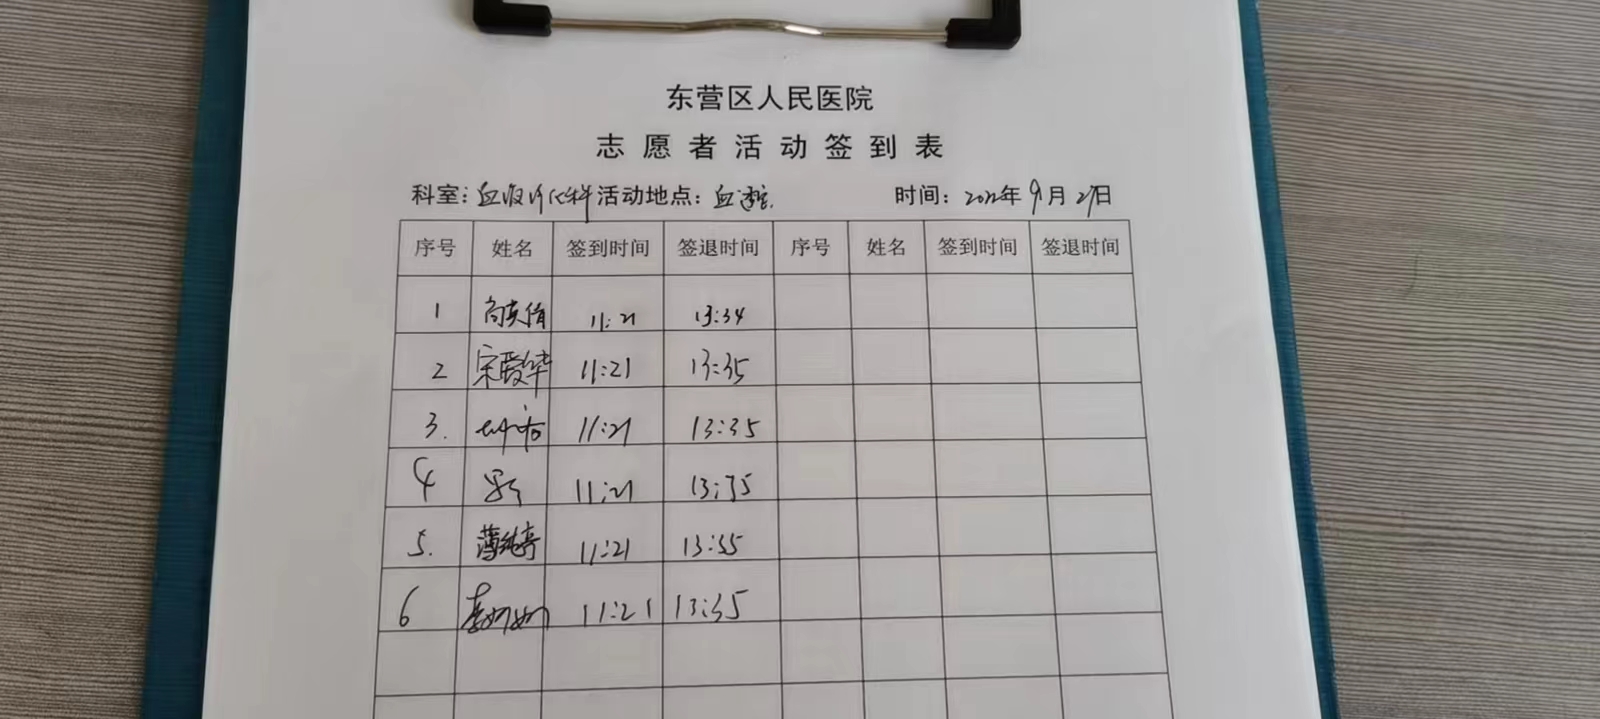 东营区人民医院
志愿者活动签到表
科室: 血液净化科 活动地点: 血透 时间: 2022年9月27日
序号 姓名 签到时间 签退时间 序号 姓名 签到时间 签退时间
1 11:21 13:34
2 宋爱华 11:21 13:35
3. 11:21 13:35
4 11:21 13:35
5. 薄纯亭 11:21 13:35
6 李如如 11:21 13:35